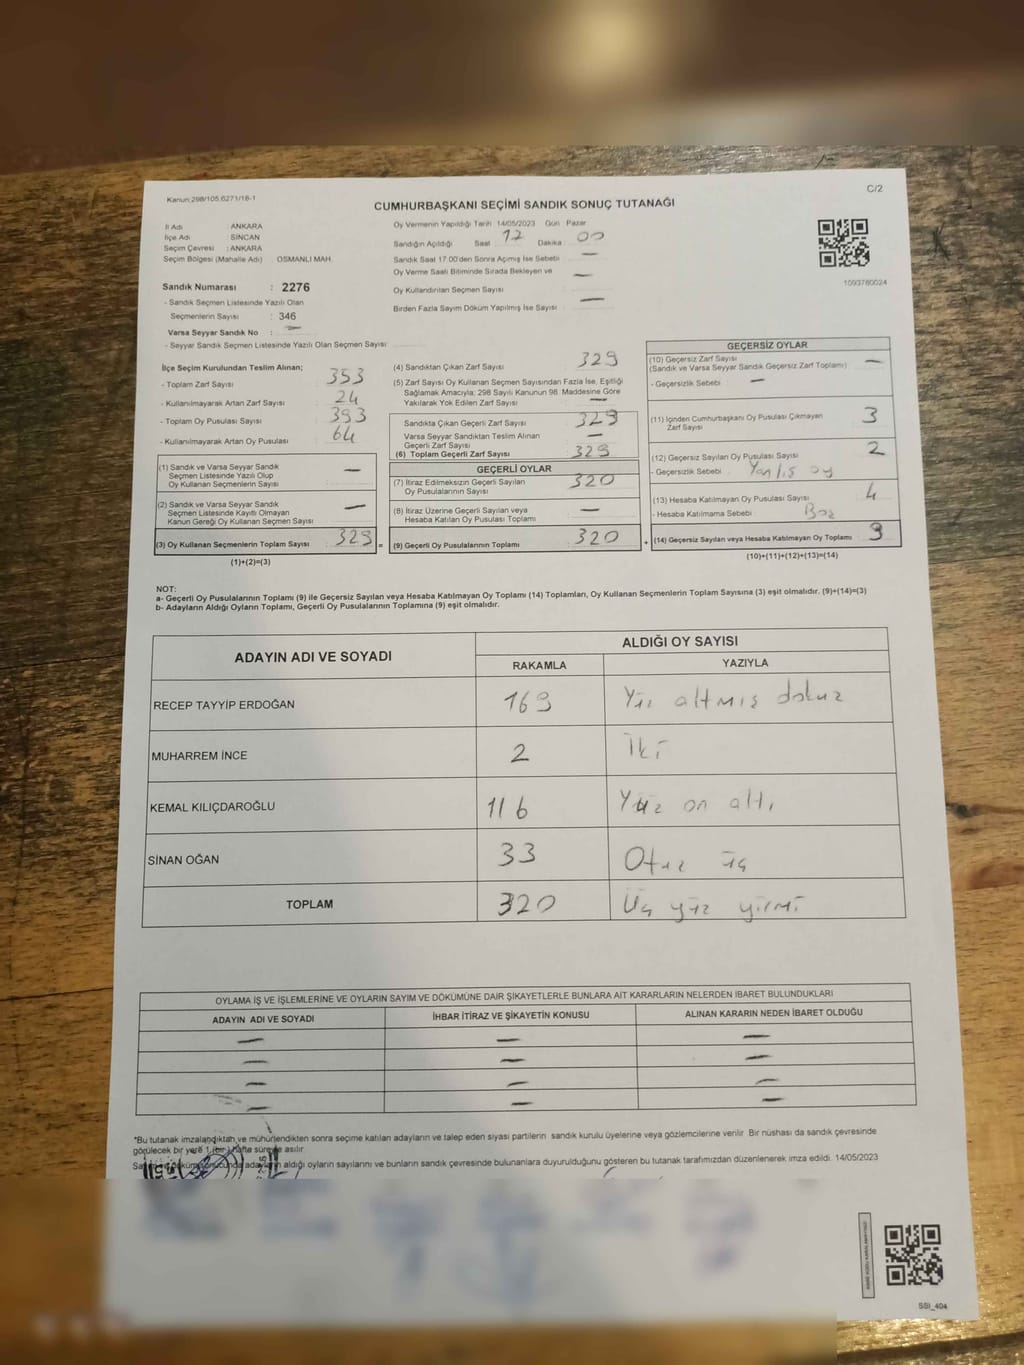 Kanun:298/105,6271/18-1
C/2
CUMHURBAŞKANI SEÇİMİ SANDIK SONUÇ TUTANAĞI
İl Adı : ANKARA
İlçe Adı : SİNCAN
Seçim Çevresi : ANKARA
Seçim Bölgesi (Mahalle Adı) : OSMANLI MAH.
Sandık Numarası : 2276
- Sandık Seçmen Listesinde Yazılı Olan
Seçmenlerin Sayısı : 346
Varsa Seyyar Sandık No : —
- Seyyar Sandık Seçmen Listesinde Yazılı Olan Seçmen Sayısı :
Oy Vermenin Yapıldığı Tarih 14/05/2023 Gün Pazar
Sandığın Açıldığı Saat 17 Dakika : 00
Sandık Saat 17:00'den Sonra Açımış İse Sebebi —
Oy Verme Saati Bitiminde Sırada Bekleyen ve —
Oy Kullandırılan Seçmen Sayısı
Birden Fazla Sayım Döküm Yapılmış İse Sayısı —
1093780024
İlçe Seçim Kurulundan Teslim Alınan;
- Toplam Zarf Sayısı : 353
- Kullanılmayarak Artan Zarf Sayısı : 24
- Toplam Oy Pusulası Sayısı : 393
- Kullanılmayarak Artan Oy Pusulası : 64
(1) Sandık ve Varsa Seyyar Sandık
Seçmen Listesinde Yazılı Olup
Oy Kullanan Seçmenlerin Sayısı —
(2) Sandık ve Varsa Seyyar Sandık
Seçmen Listesinde Kayıtlı Olmayan
Kanun Gereği Oy Kullanan Seçmen Sayısı —
(3) Oy Kullanan Seçmenlerin Toplam Sayısı 329 =
(1)+(2)=(3)
(4) Sandıktan Çıkan Zarf Sayısı 329
(5) Zarf Sayısı Oy Kullanan Seçmen Sayısından Fazla İse, Eşitliği
Sağlamak Amacıyla; 298 Sayılı Kanunun 98. Maddesine Göre
Yakılarak Yok Edilen Zarf Sayısı —
Sandıkta Çıkan Geçerli Zarf Sayısı 329
Varsa Seyyar Sandıktan Teslim Alınan
Geçerli Zarf Sayısı —
(6) Toplam Geçerli Zarf Sayısı 329
GEÇERLİ OYLAR
(7) İtiraz Edilmeksizin Geçerli Sayılan
Oy Pusulalarının Sayısı 320
(8) İtiraz Üzerine Geçerli Sayılan veya
Hesaba Katılan Oy Pusulası Toplamı —
(9) Geçerli Oy Pusulalarının Toplamı 320 +
GEÇERSİZ OYLAR
(10) Geçersiz Zarf Sayısı
(Sandık ve Varsa Seyyar Sandık Geçersiz Zarf Toplamı) —
- Geçersizlik Sebebi : —
(11) İçinden Cumhurbaşkanı Oy Pusulası Çıkmayan
Zarf Sayısı 3
(12) Geçersiz Sayılan Oy Pusulası Sayısı 2
- Geçersizlik Sebebi : Yanlış oy
(13) Hesaba Katılmayan Oy Pusulası Sayısı 4
- Hesaba Katılmama Sebebi : Boz
(14) Geçersiz Sayılan veya Hesaba Katılmayan Oy Toplamı 9
(10)+(11)+(12)+(13)=(14)
NOT:
a- Geçerli Oy Pusulalarının Toplamı (9) ile Geçersiz Sayılan veya Hesaba Katılmayan Oy Toplamı (14) Toplamları, Oy Kullanan Seçmenlerin Toplam Sayısına (3) eşit olmalıdır. (9)+(14)=(3)
b- Adayların Aldığı Oyların Toplamı, Geçerli Oy Pusulalarının Toplamına (9) eşit olmalıdır.
ADAYIN ADI VE SOYADI ALDIĞI OY SAYISI
RAKAMLA YAZIYLA
RECEP TAYYİP ERDOĞAN 169 Yüz altmış dokuz
MUHARREM İNCE 2 İki
KEMAL KILIÇDAROĞLU 116 Yüz on altı
SİNAN OĞAN 33 Otuz üç
TOPLAM 320 Üç yüz yirmi
OYLAMA İŞ VE İŞLEMLERİNE VE OYLARIN SAYIM VE DÖKÜMÜNE DAİR ŞİKAYETLERLE BUNLARA AİT KARARLARIN NELERDEN İBARET BULUNDUKLARI
ADAYIN ADI VE SOYADI İHBAR İTİRAZ VE ŞİKAYETİN KONUSU ALINAN KARARIN NEDEN İBARET OLDUĞU
— — —
— — —
— — —
— — —
*Bu tutanak imzalandıktan ve mühürlendikten sonra seçime katılan adayların ve talep eden siyasi partilerin sandık kurulu üyelerine veya gözlemcilerine verilir. Bir nüshası da sandık çevresinde
görülecek bir yere 1 (bir) hafta süreyle asılır.
Sayım ve döküm sonucunda adayların aldığı oyların sayılarını ve bunların sandık çevresinde bulunanlara duyurulduğunu gösteren bu tutanak tarafımızdan düzenlenerek imza edildi. 14/05/2023
SSI_404